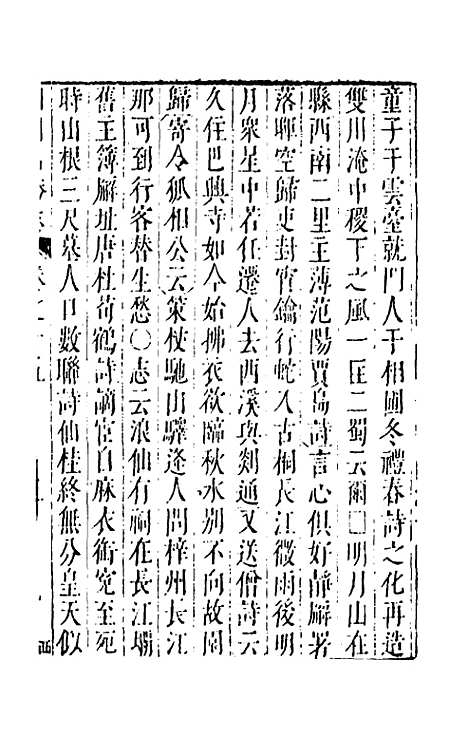 童子于雲臺就門人于相國冬禮春詩之化再造
雙川淹中稷下之風一匡二蜀云爾□明月山在
縣西南二里主薄范陽賈島詩言心俱好靜廨署
落暉空歸吏封宵鑰行蛇入古桐長江微雨後明
月衆星中若任遷人去西溪與剡通又送僧詩云
久住巴興寺如今始拂衣欲臨秋水別不向故園
歸寄令狐相公云策杖馳山驛逢人問梓州長江
那可到行客替生愁〇志云浪仙有祠在長江壩
舊主簿廨址唐杜荀鶴詩謫宦自麻衣銜寃至死
時山根三尺墓人口數聯詩仙桂終無分皇天似
卷之十五